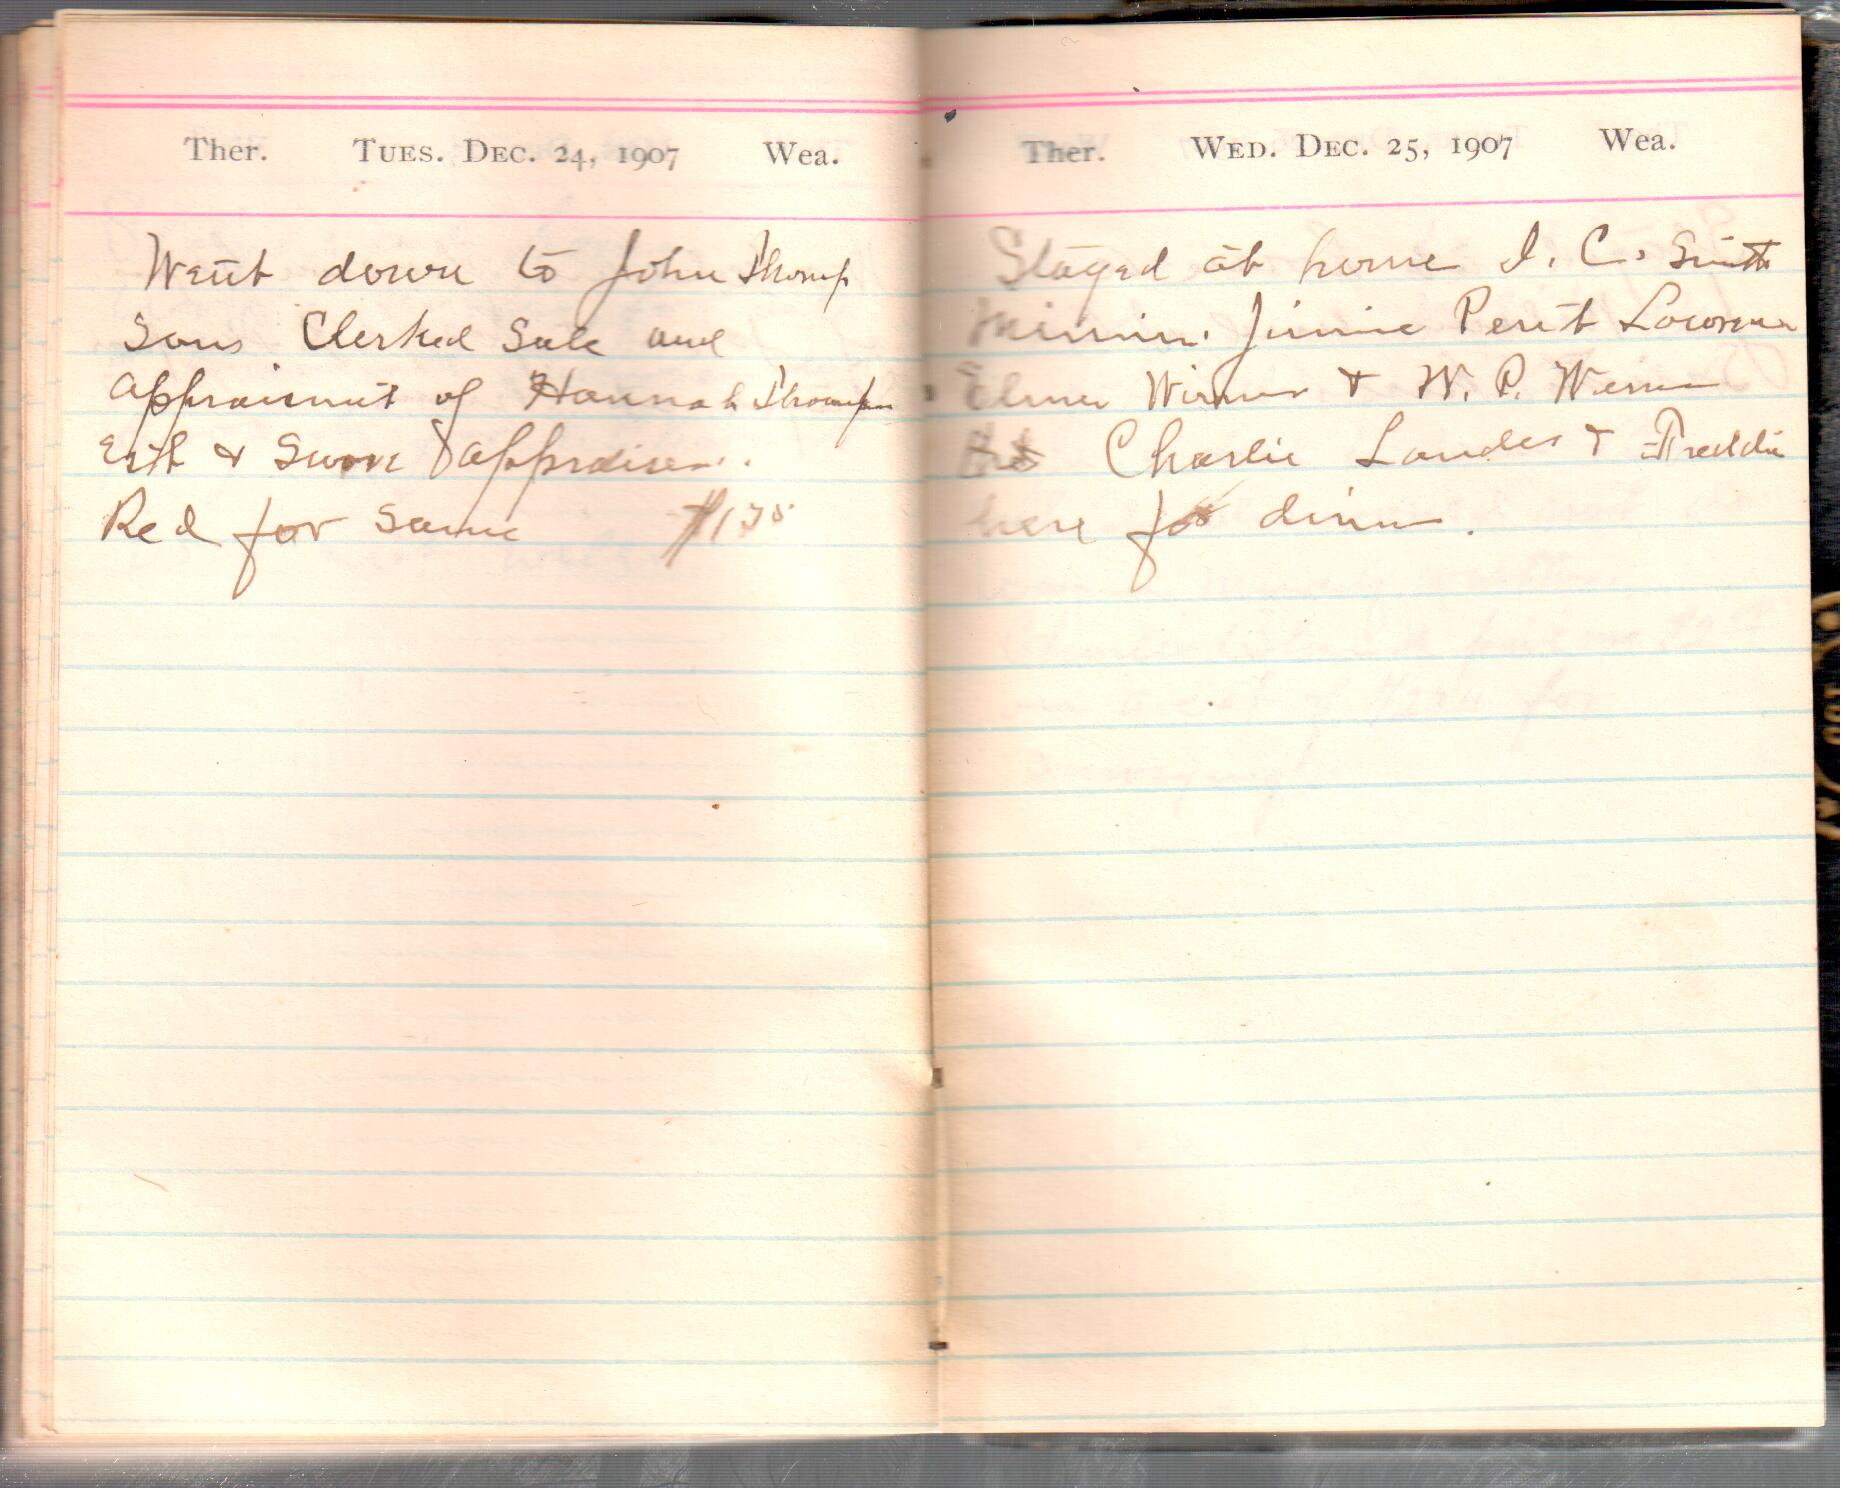 Ther. Tues. Dec. 24, 1907 Wea.
Went down to John Thomp
sons Clerked Sale and
appraisment of Hannah Thompson
Est & Swore appraisers.
Recd for same
Ther. Wed. Dec. 25, 1907 Wea.
Stayed at home I. C. Smith
Minnie. Jimmie
Elmer & W. P.
Charlie Landes & Freddie
here for dinner.